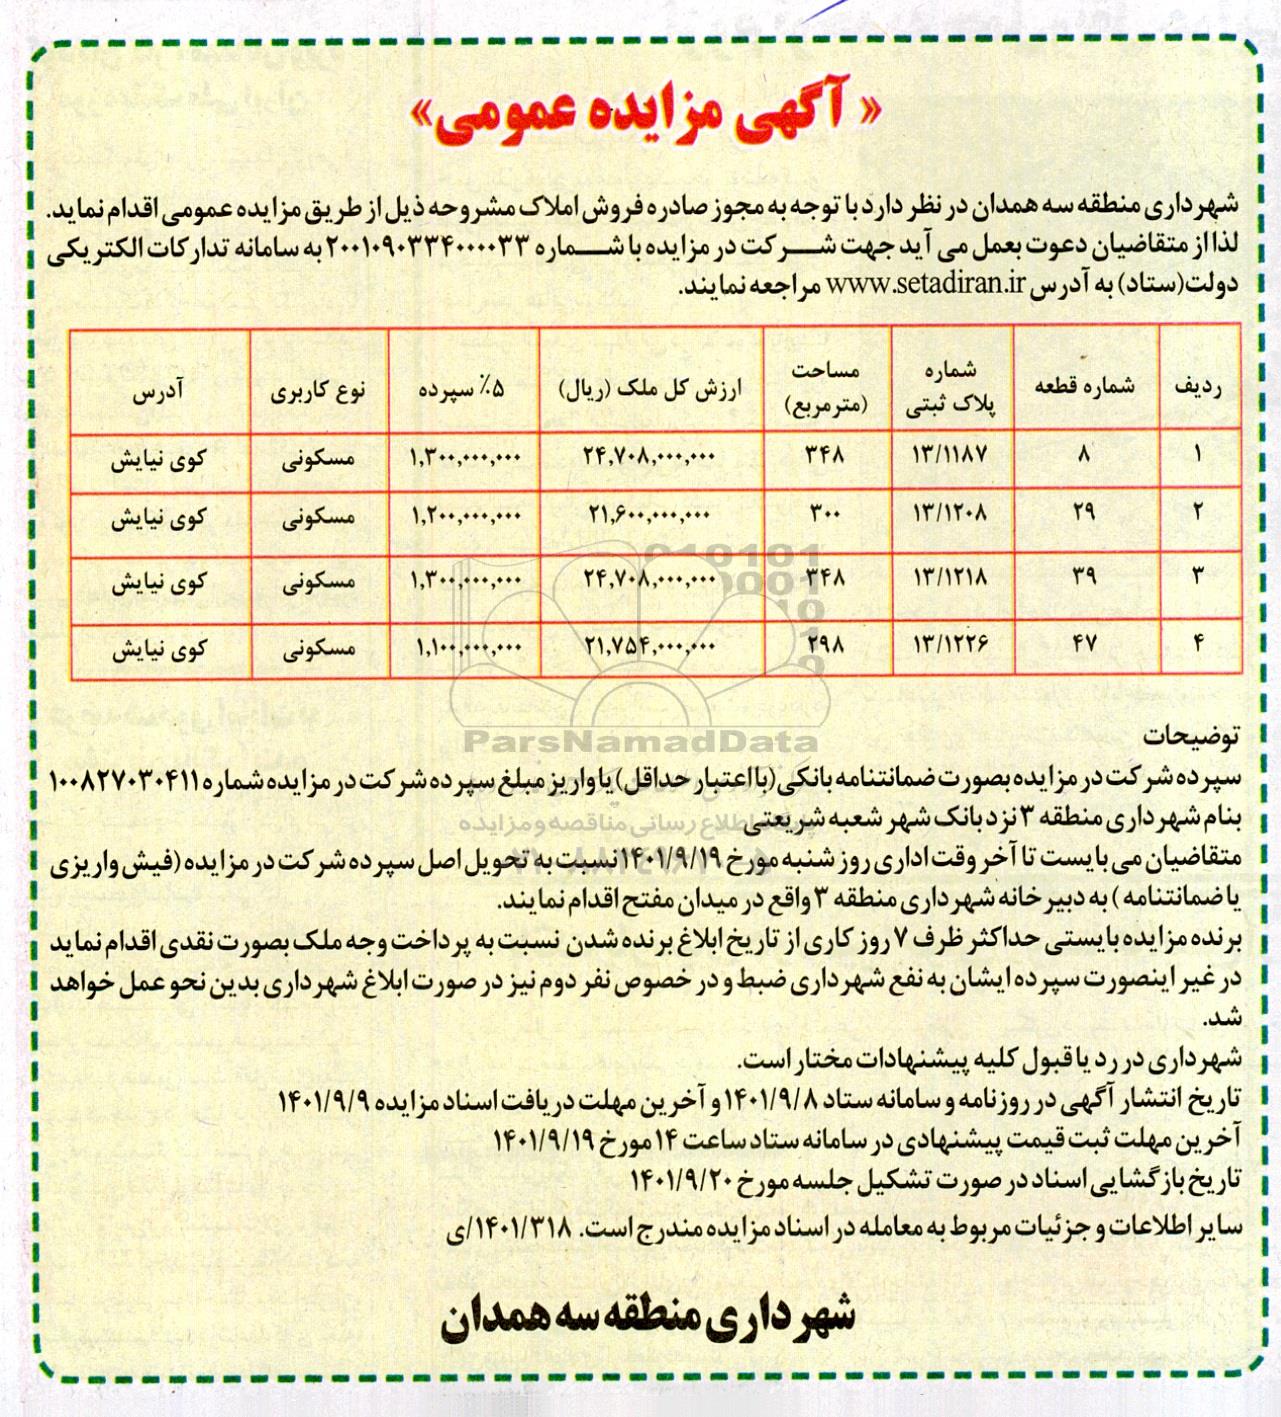 « آگهی مزایده عمومی»
شهرداری منطقه سه همدان در نظر دارد با توجه به مجوز صادره فروش املاک مشروحه ذیل از طریق مزایده عمومی اقدام نماید.
لذا از متقاضیان دعوت بعمل می آید جهت شرکت در مزایده با شماره ۲۰۰۱۰۹۰۳۳۴۰۰۰۰۳۳ به سامانه تدارکات الکتریکی
دولت(ستاد) به آدرس www.setadiran.ir مراجعه نمایند.
ردیف شماره قطعه شماره پلاک ثبتی مساحت (مترمربع) ارزش کل ملک (ریال) ۵٪ سپرده نوع کاربری آدرس
۱ ۸ ۱۳/۱۱۸۷ ۳۴۸ ۲۴,۷۰۸,۰۰۰,۰۰۰ ۱,۳۰۰,۰۰۰,۰۰۰ مسکونی کوی نیایش
۲ ۲۹ ۱۳/۱۲۰۸ ۳۰۰ ۲۱,۶۰۰,۰۰۰,۰۰۰ ۱,۲۰۰,۰۰۰,۰۰۰ مسکونی کوی نیایش
۳ ۳۹ ۱۳/۱۲۱۸ ۳۴۸ ۲۴,۷۰۸,۰۰۰,۰۰۰ ۱,۳۰۰,۰۰۰,۰۰۰ مسکونی کوی نیایش
۴ ۴۷ ۱۳/۱۲۲۶ ۲۹۸ ۲۱,۷۵۴,۰۰۰,۰۰۰ ۱,۱۰۰,۰۰۰,۰۰۰ مسکونی کوی نیایش
ParsNamadData
توضیحات
سپرده شرکت در مزایده بصورت ضمانتنامه بانکی(بااعتبار حداقل) یا واریز مبلغ سپرده شرکت در مزایده شماره ۱۰۰۸۲۷۰۳۰۴۱۱
بنام شهرداری منطقه ۳ نزد بانک شهر شعبه شریعتی
متقاضیان می بایست تا آخر وقت اداری روز شنبه مورخ ۱۴۰۱/۹/۱۹ نسبت به تحویل اصل سپرده شرکت در مزایده (فیش واریزی
یا ضمانتنامه ) به دبیرخانه شهرداری منطقه ۳ واقع در میدان مفتح اقدام نمایند.
برنده مزایده بایستی حداکثر ظرف ۷ روز کاری از تاریخ ابلاغ برنده شدن نسبت به پرداخت وجه ملک بصورت نقدی اقدام نماید
در غیر اینصورت سپرده ایشان به نفع شهرداری ضبط و در خصوص نفر دوم نیز در صورت ابلاغ شهرداری بدین نحو عمل خواهد
شد.
شهرداری در رد یا قبول کلیه پیشنهادات مختار است.
تاریخ انتشار آگهی در روزنامه و سامانه ستاد ۱۴۰۱/۹/۸ و آخرین مهلت دریافت اسناد مزایده ۱۴۰۱/۹/۹
آخرین مهلت ثبت قیمت پیشنهادی در سامانه ستاد ساعت ۱۴ مورخ ۱۴۰۱/۹/۱۹
تاریخ بازگشایی اسناد در صورت تشکیل جلسه مورخ ۱۴۰۱/۹/۲۰
سایر اطلاعات و جزئیات مربوط به معامله در اسناد مزایده مندرج است. ۱۴۰۱/۳۱۸/ی
شهرداری منطقه سه همدان